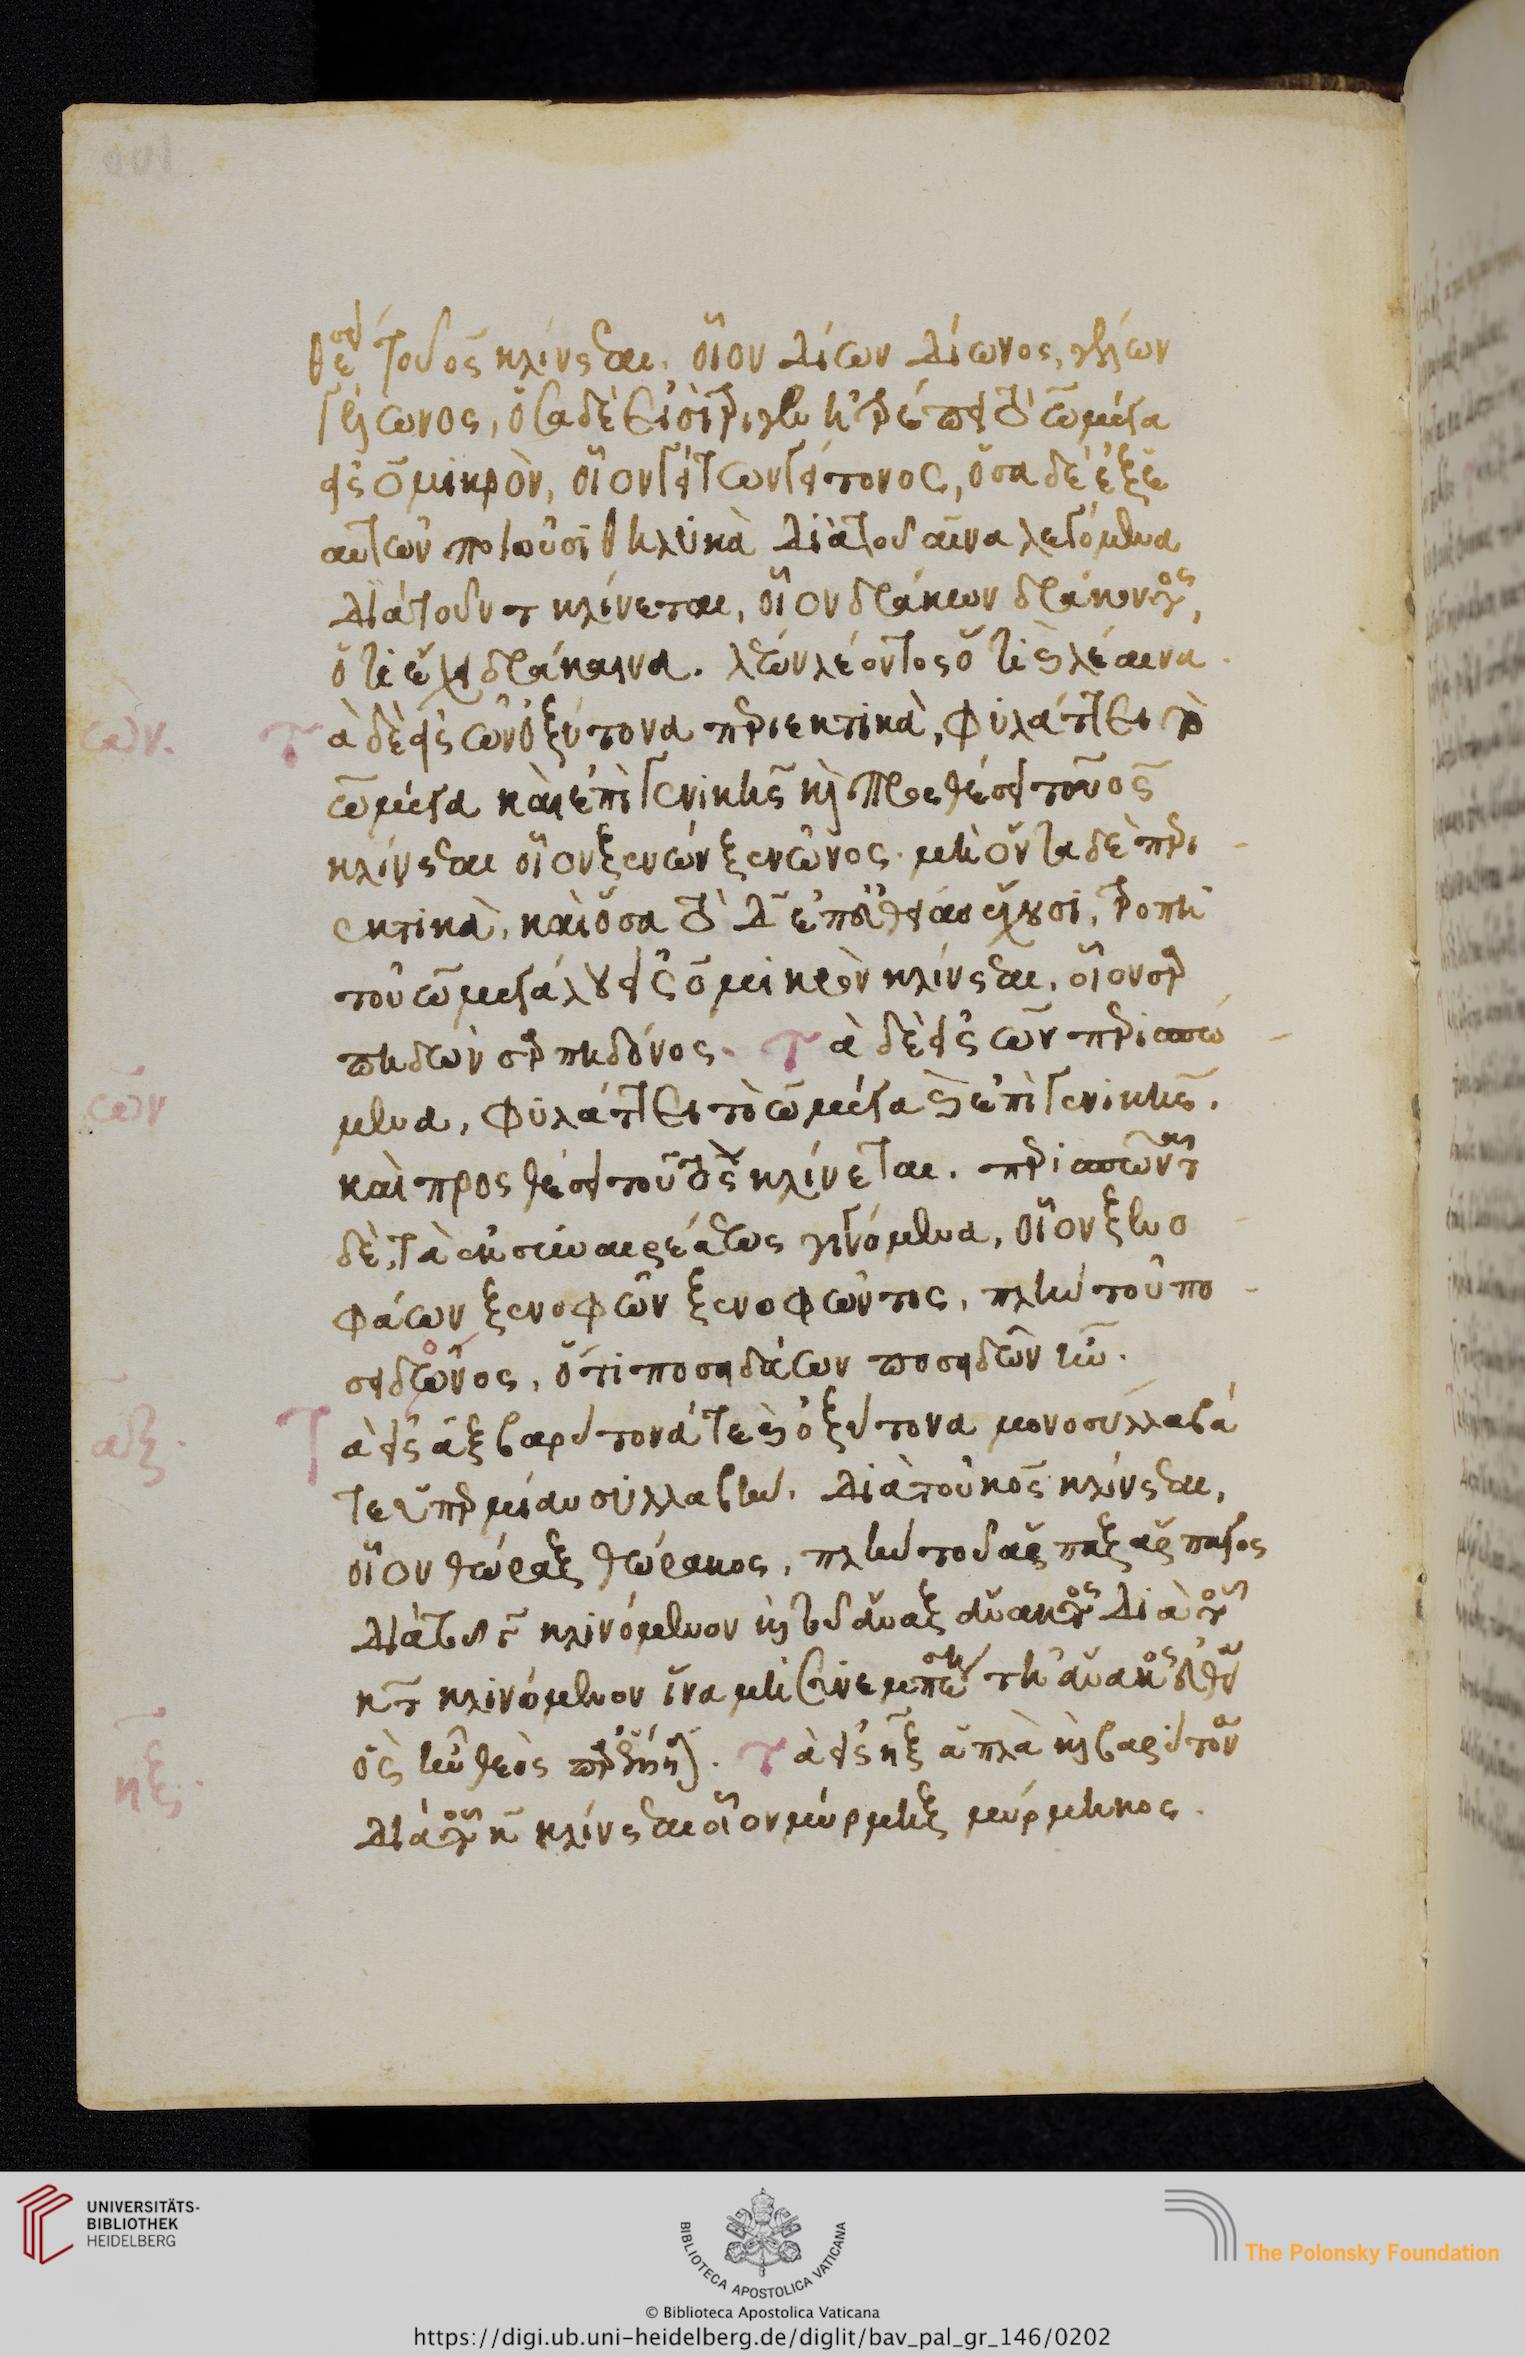 θέσει τοῦ ος κλίνεται. οἷον Δίων Δίωνος, χείων
ὅσα δὲ
εἰς ο μικρὸν, οἷον γείτων γείτονος, ὅσα δὲ ἐξ
αὐτῶν ποιοῦσι θηλυκὰ διὰ τοῦ αινα λεγόμενα
διὰ τοῦ ντ κλίνεται, οἷον δράκων δράκοντος,
ὅτι ἔχει δράκαινα. λέων λέοντος ὅτι καὶ λέαινα.
ων. Τὰ δὲ εἰς ων ὀξύτονα περιεκτικὰ, φυλάττει τὸ
ω μέγα καὶ ἐπὶ γενικῆς καὶ προσθέσει τοῦ ος
κλίνεται οἷον ξενών ξενῶνος. μὴ ὄντα δὲ περι
εκτικὰ, καὶ ὅσα τὸ δ ἔχουσι, τροπῇ
τοῦ ω μεγάλου εἰς ο μικρὸν κλίνεται, οἷον σαρ
πηδὼν σαρπηδόνος. Τὰ δὲ εἰς ων περισπώ
ων
μενα, φυλάττει τὸ ω μέγα καὶ ἐπὶ γενικῆς.
καὶ προσθέσει τοῦ ος κλίνεται. περισπῶνται
δὲ, τὰ ἐκ συναιρέσεως γινόμενα, οἷον ξενο
φάων ξενοφῶν ξενοφῶντος, πλὴν τοῦ πο
σειδῶνος, ὅτι ποσειδάων ποσειδῶν ἦν.
αξ. Τὰ εἰς αξ βαρύτονά τε καὶ ὀξύτονα μονοσύλλαβά
τε καὶ ὑπὲρ μίαν συλλαβὴν. διὰ τοῦ κος κλίνεται,
οἷον θώραξ θώρακος, πλὴν τοῦ ἅρπαξ ἅρπαγος
διὰ τοῦ γ κλινόμενον καὶ τοῦ ἄναξ ἄνακτος διὰ τοῦ
κτ κλινόμενον ἵνα μὴ συνεμπέσῃ τῇ ἄνακος
ὃς ἦν θεὸς
ηξ. Τὰ εἰς ηξ ἁπλὰ καὶ βαρύτονα
διὰ τοῦ κ κλίνεται οἷον μύρμηξ μύρμηκος.
UNIVERSITÄTS-
BIBLIOTHEK
HEIDELBERG
BIBLIOTECA APOSTOLICA VATICANA
The Polonsky Foundation
© Biblioteca Apostolica Vaticana
https://digi.ub.uni-heidelberg.de/diglit/bav_pal_gr_146/0202